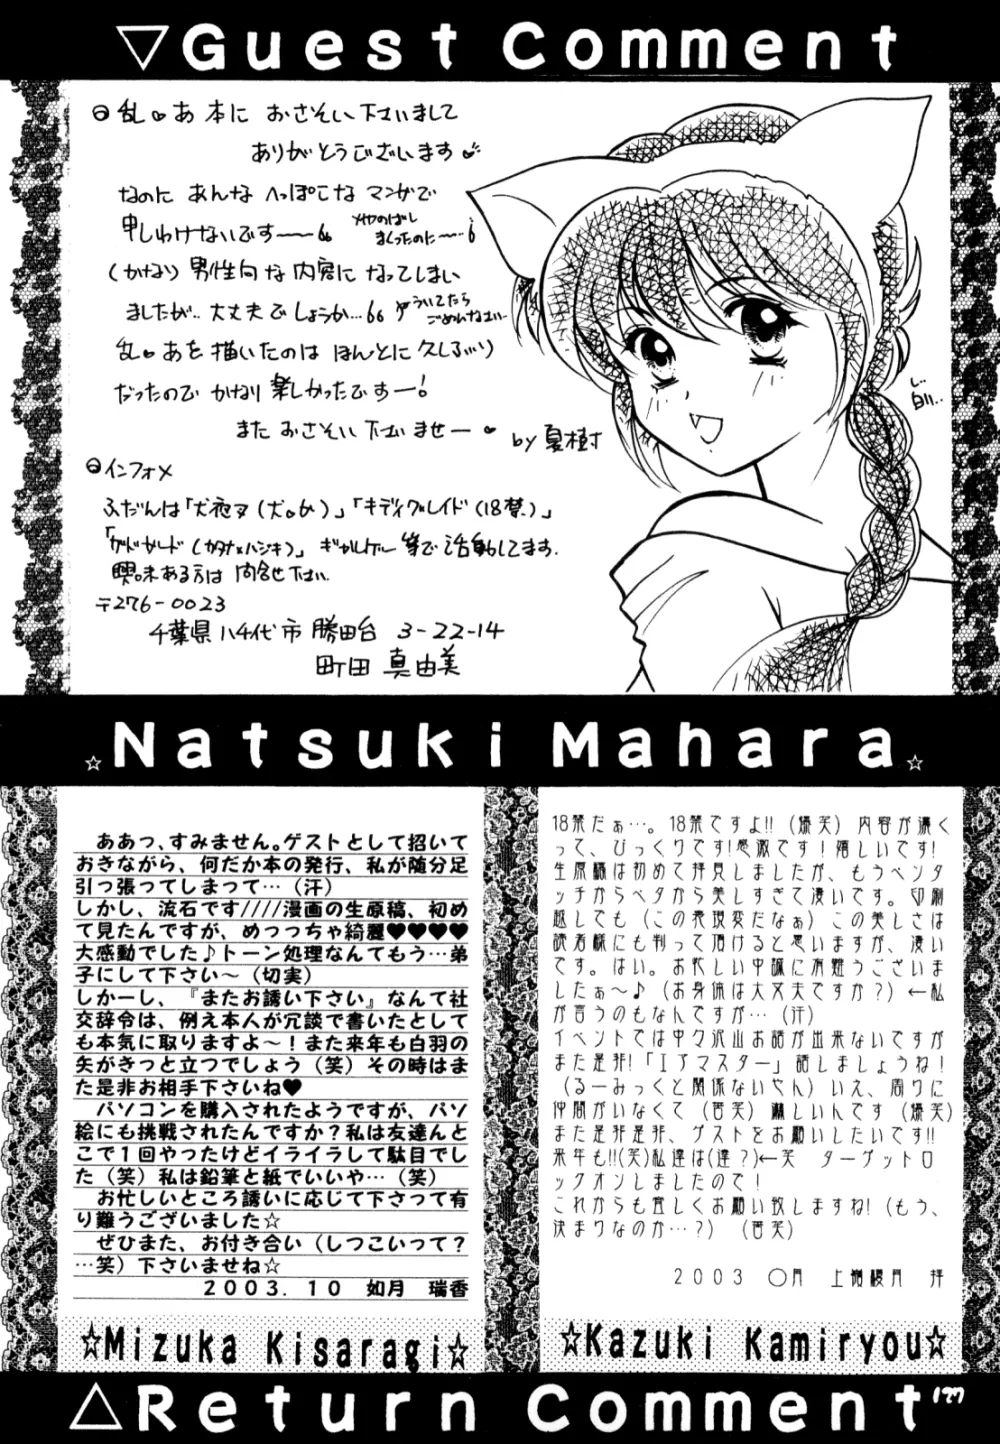 ▽Guest Comment
乱・あ 本に おさそい下さいまして
ありがとうございます
なのに あんな へっぽこな マンガで
申しわけないです〜〜
〆切のばし
まくったのに〜…
(かなり) 男性向な内容に なってしまい
ましたが… 大丈夫でしょうか…
ういてたら
ごめんなさい…
乱・あを 描いたのは ほんとに 久しぶり
だったので かなり 楽しかったですー!
また おさそい 下さいませー
by 夏樹
白い…
インフォメ
ふだんは「犬夜叉(犬・か)」「キディグレイド(18禁)」
ギャルゲー等で活動してます。
興味ある方は 問合せ下さい。
〒276-0023
千葉県八千代市 勝田台 3-22-14
町田 真由美
☆Natsuki Mahara☆
ああっ、すみません。ゲストとして招いて
おきながら、何だか本の発行、私が随分足
引っ張ってしまって…（汗）
しかし、流石です////漫画の生原稿、初め
て見たんですが、めっっちゃ綺麗♥♥♥♥
大感動でした♪トーン処理なんてもう…弟
子にして下さい〜（切実）
しかーし、『またお誘い下さい』なんて社
交辞令は、例え本人が冗談で書いたとして
も本気に取りますよ〜！また来年も白羽の
矢がきっと立つでしょう（笑）その時はま
た是非お相手下さいね♥
パソコンを購入されたようですが、パソ
絵にも挑戦されたんですか？私は友達んと
こで１回やったけどイライラして駄目でし
た（笑）私は鉛筆と紙でいいや…（笑）
お忙しいところ誘いに応じて下さって有
り難うございました☆
ぜひまた、お付き合い（しつこいって？
…笑）下さいませね☆
２００３．１０　如月　瑞香
☆Mizuka Kisaragi☆
18禁だぁ…。18禁ですよ!!（爆笑）内容が濃く
って、びっくりです!感激です！嬉しいです!
生原稿は初めて拝見しましたが、もうペンタ
ッチからベタから美しすぎて凄いです。印刷
越しても（この表現変だなぁ）この美しさは
読者様にも判って頂けると思いますが、凄い
です。はい。お忙しい中誠に有難うございま
したぁ〜♪（お身体は大丈夫ですか？）←私
が言うのもなんですが…（汗）
イベントでは中々沢山お話が出来ないですが
また是非!「エアマスター」話しましょうね！
（るーみっくと関係ないやん）いえ、周りに
仲間がいなくて（苦笑）淋しいんです（爆笑）
また是非是非、ゲストをお願いしたいです!!
来年も!!(笑)私達は(達？)←笑　ターゲットロ
ックオンしましたので！
これからも宜しくお願い致しますね!（もう、
決まりなのか…？）（苦笑）
２００３　〇月　上領縵月　拝
☆Kazuki Kamiryou☆
△Return Comment
177